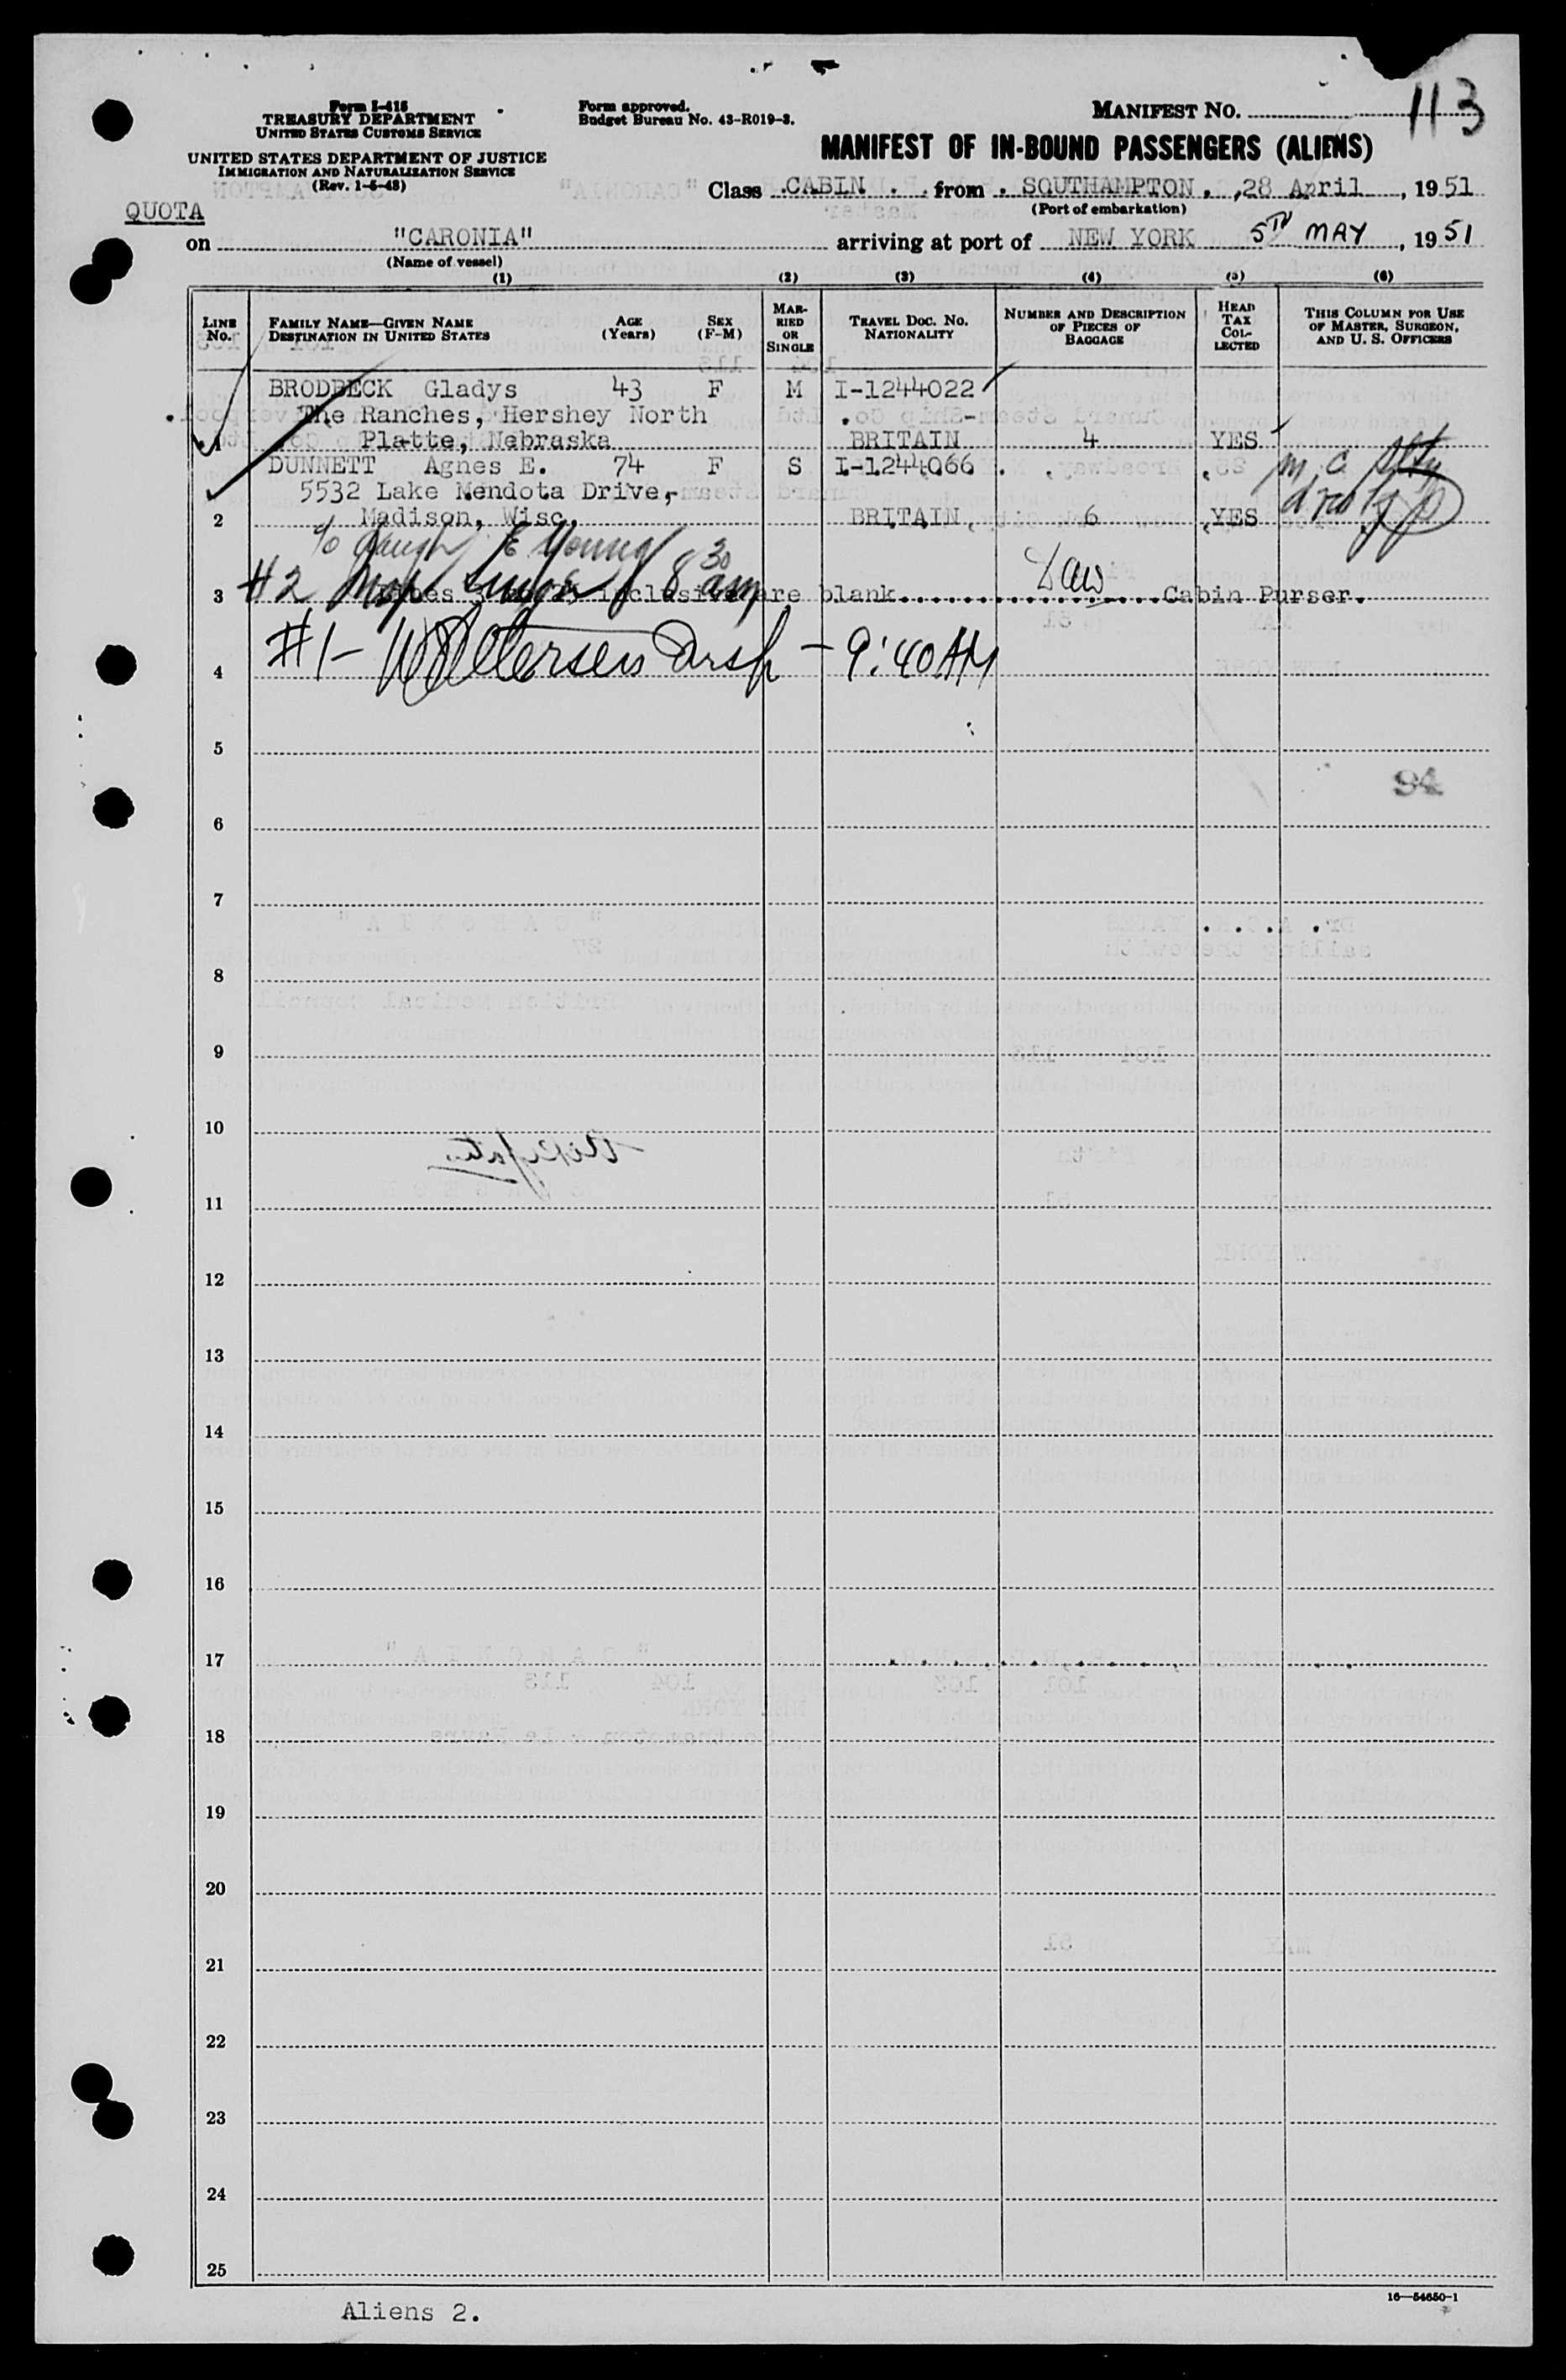 Form I-418
TREASURY DEPARTMENT
UNITED STATES CUSTOMS SERVICE
UNITED STATES DEPARTMENT OF JUSTICE
IMMIGRATION AND NATURALIZATION SERVICE
(Rev. 1-6-48)
Form approved.
Budget Bureau No. 43-R019-3.
MANIFEST NO. 113
MANIFEST OF IN-BOUND PASSENGERS (ALIENS)
Class CABIN from SOUTHAMPTON, 28 April, 1951
(Port of embarkation)
QUOTA
on "CARONIA" arriving at port of NEW YORK 5TH MAY, 1951
(Name of vessel)
(1) (2) (3) (4) (5) (6)
LINE NO. FAMILY NAME—GIVEN NAME DESTINATION IN UNITED STATES AGE (Years) SEX (F-M) MARRIED OR SINGLE TRAVEL DOC. NO. NATIONALITY NUMBER AND DESCRIPTION OF PIECES OF BAGGAGE HEAD TAX COLLECTED THIS COLUMN FOR USE OF MASTER, SURGEON, AND U. S. OFFICERS
BRODBECK Gladys 43 F M I-1244022
The Ranches, Hershey North
1 Platte, Nebraska BRITAIN 4 YES
DUNNETT Agnes E. 74 F S I-1244066
5532 Lake Mendota Drive,
2 Madison, Wisc. BRITAIN 6 YES
c/o daugh E Young
#2 8 30 am
3 Lines 3 to 25 inclusive are blank Cabin Purser.
4 #1 - 9:40 AM
5
94
6
7
8
9
10
11
12
13
14
15
16
17
18
19
20
21
22
23
24
25
16—54650-1
Aliens 2.